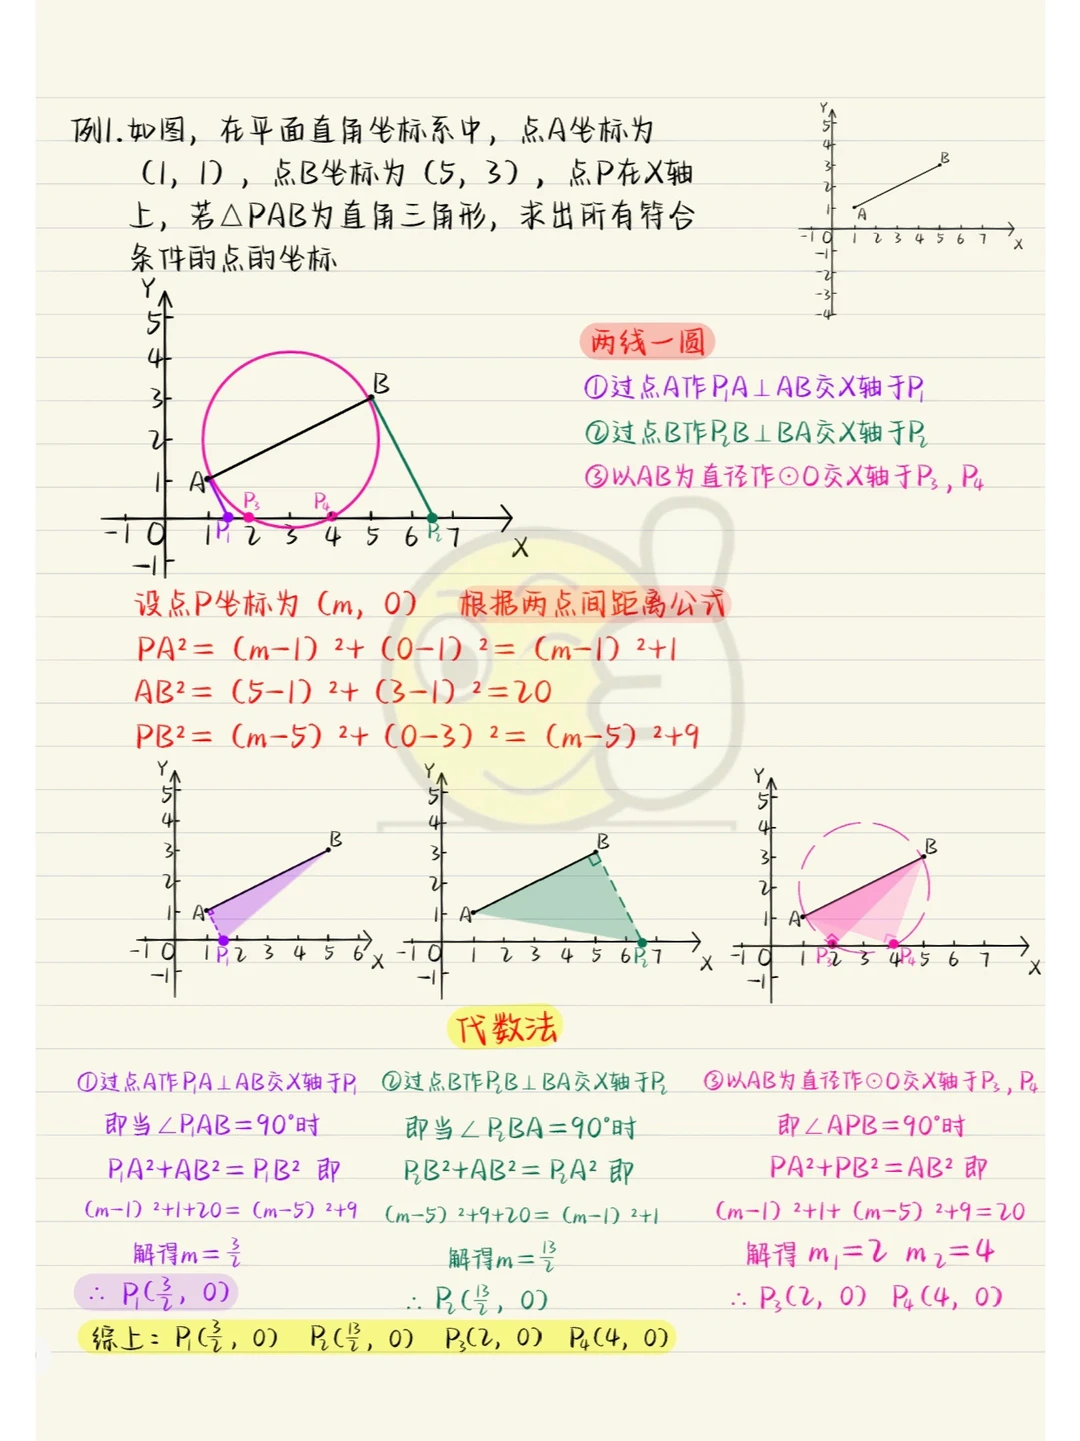 例1.如图，在平面直角坐标系中，点A坐标为
（1，1），点B坐标为（5，3），点P在X轴
上，若△PAB为直角三角形，求出所有符合
条件的点的坐标
Y
5
4
3
2
1
-1 0 1 2 3 4 5 6 7 X
-1
-2
-3
-4
A
B
Y
5
4
3
2
1
-1 0 1 P₁ 2 3 4 5 6 P₂ 7 X
-1
A
B
P₃
P₄
两线一圆
①过点A作P₁A⊥AB交X轴于P₁
②过点B作P₂B⊥BA交X轴于P₂
③以AB为直径作⊙O交X轴于P₃，P₄
设点P坐标为（m，0） 根据两点间距离公式
PA²=（m-1）²+（0-1）²=（m-1）²+1
AB²=（5-1）²+（3-1）²=20
PB²=（m-5）²+（0-3）²=（m-5）²+9
Y
5
4
3
2
1
-1 0 1 P₁ 2 3 4 5 6 X
-1
A
B
Y
5
4
3
2
1
-1 0 1 2 3 4 5 6 P₂ 7 X
-1
A
B
Y
5
4
3
2
1
-1 0 1 P₃ 2 3 4 P₄ 5 6 7 X
-1
A
B
代数法
①过点A作P₁A⊥AB交X轴于P₁
即当∠P₁AB=90°时
P₁A²+AB²=P₁B² 即
（m-1）²+1+20=（m-5）²+9
解得m=3/2
∴ P₁(3/2，0)
②过点B作P₂B⊥BA交X轴于P₂
即当∠P₂BA=90°时
P₂B²+AB²=P₂A² 即
（m-5）²+9+20=（m-1）²+1
解得m=13/2
∴ P₂(13/2，0)
③以AB为直径作⊙O交X轴于P₃，P₄
即∠APB=90°时
PA²+PB²=AB² 即
（m-1）²+1+（m-5）²+9=20
解得 m₁=2 m₂=4
∴ P₃(2，0) P₄(4，0)
综上：P₁(3/2，0) P₂(13/2，0) P₃(2，0) P₄(4，0)